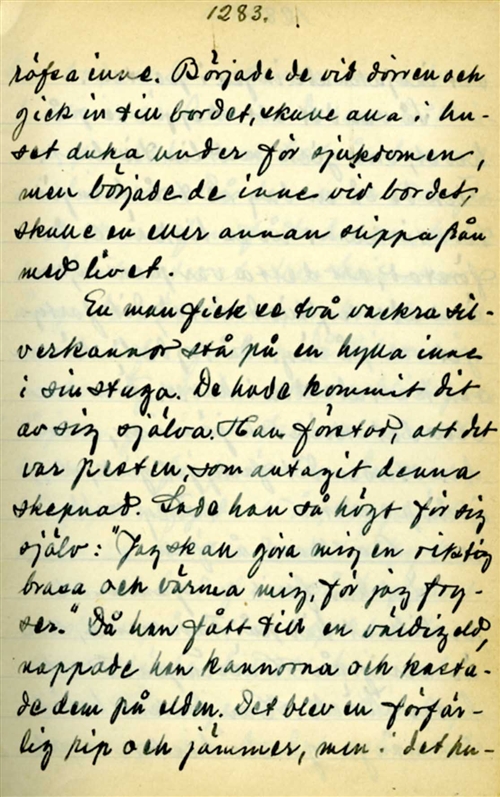 1283.
röfsa inne. Började de vid dörren och
gick in till bordet, skulle alla i hu-
set duka under för sjukdomen,
men började de inne vid bordet,
skulle en eller annan slippa från
med livet.
En man fick se två vackra sil-
verkannor stå på en hylla inne
i sin stuga. De hade kommit dit
av sig själva. Han förstod, att det
var pesten, som antagit denna
skepnad. Sade han så högt för sig
själv: "Jag skall göra mig en riktig
brasa och värma mig, för jag fry-
ser." Då han fått till en väldig eld,
nappade han kannorna och kasta-
de dem på elden. Det blev en förfär-
lig pip och jämmer, men i det hu-